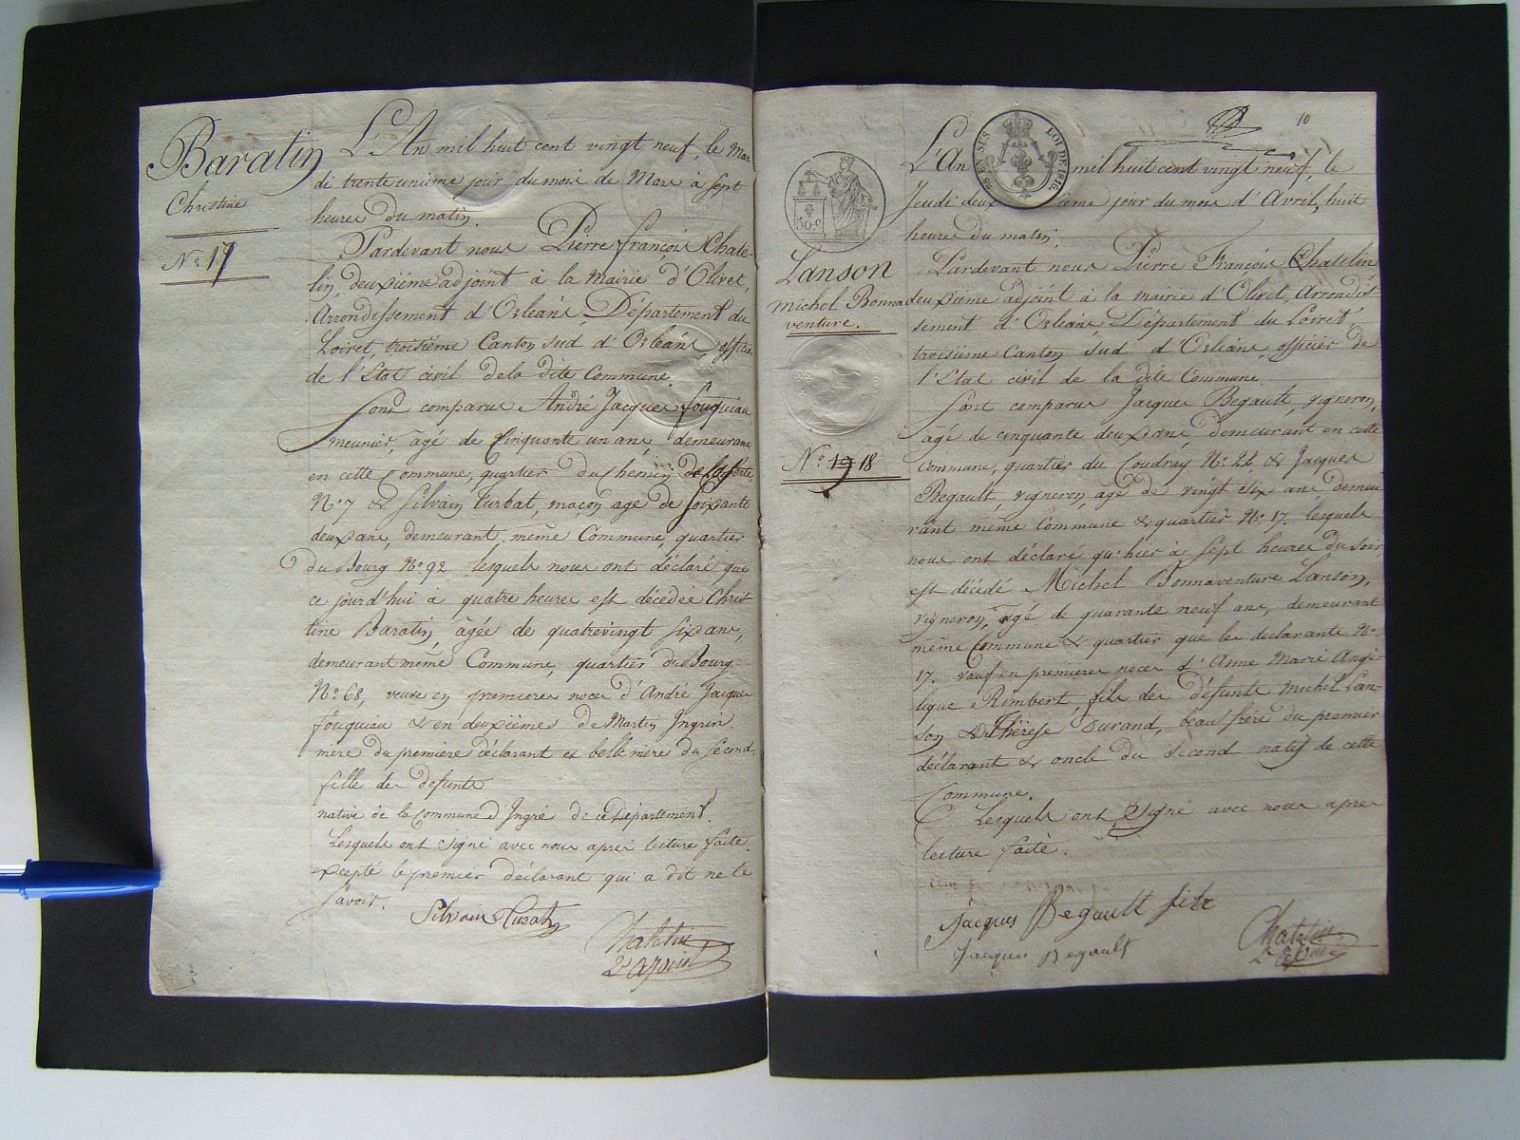 Baratin
Christine
N° 17
L'An mil huit cent vingt neuf, le mar
di trente unième jour du mois de Mars à sept
heures du matin.
Pardevant nous Pierre françois Chate-
lin, deuxième adjoint à la Mairie d'Olivet,
Arrondissement d'Orléans, Département du
Loiret, troisième Canton sud d'Orléans, officier
de l'Etat civil dela dite Commune.
Sont comparus André Jacques fouquiau
meunier, âgé de Cinquante un ans, demeurant
en cette Commune, quartier du Chemin de la ferté
N° 7 & Silvain Turbat, maçon agé de soixante
deux ans, demeurant même Commune, quartier
du Bourg N° 92 lesquels nous ont déclaré que
ce jourd'hui à quatre heures est décédée Chris
tine Baratin, âgée de quatrevingt six ans,
demeurant même Commune, quartier du Bourg
N° 68, veuve en premieres noces d'André Jacques
fouquiau & en deuxièmes de Martin
mère du premiere déclarant et belle mère du second,
fille de defunts
native de la Commune d'Ingré de ce Département.
Lesquels ont signé avec nous après lecture faite.
excepté le premier déclarant qui a dit ne le
savoir.
Silvain Turbat
Chatelin
2e adjoint
10
LOI DE 1816.
50 c
Lanson
Michel Bonna
venture.
N° 19 18
L'An mil huit cent vingt neuf, le
Jeudi deuxième jour du mois d'Avril, huit
heures du matin.
Pardevant nous Pierre François Chatelin
deuxième adjoint à la mairie d'Olivet, Arrondis-
sement d'Orléans, Département du Loiret,
troisième Canton sud d'Orléans, officier de
l'Etat civil de la dite Commune.
Sont comparus Jacques Begault, vigneron,
âgé de cinquante deux ans, demeurant en cette
commune, quartier du Coudray N° 28, & Jacques
Begault, vigneron, âgé de vingt six ans demeu
rant même Commune & quartier N° 17. lesquels
nous ont déclaré qu'hier à sept heures du soir
est décédé Michel Bonnaventure Lanson,
vigneron, âgé de quarante neuf ans, demeurant
même Commune & quartier que les declarants N°
17. veuf en premieres noces d'Anne Marie Angé
lique Rimbert, fils des défunts Michel Lan-
son & Thérèse Durand, beau frère du premier
déclarant & oncle du second natif de cette
Commune.
Lesquels ont signé avec nous apres
lecture faite.
jacques Begault fils
Jacques Begault
Chatelin
2e adjoint